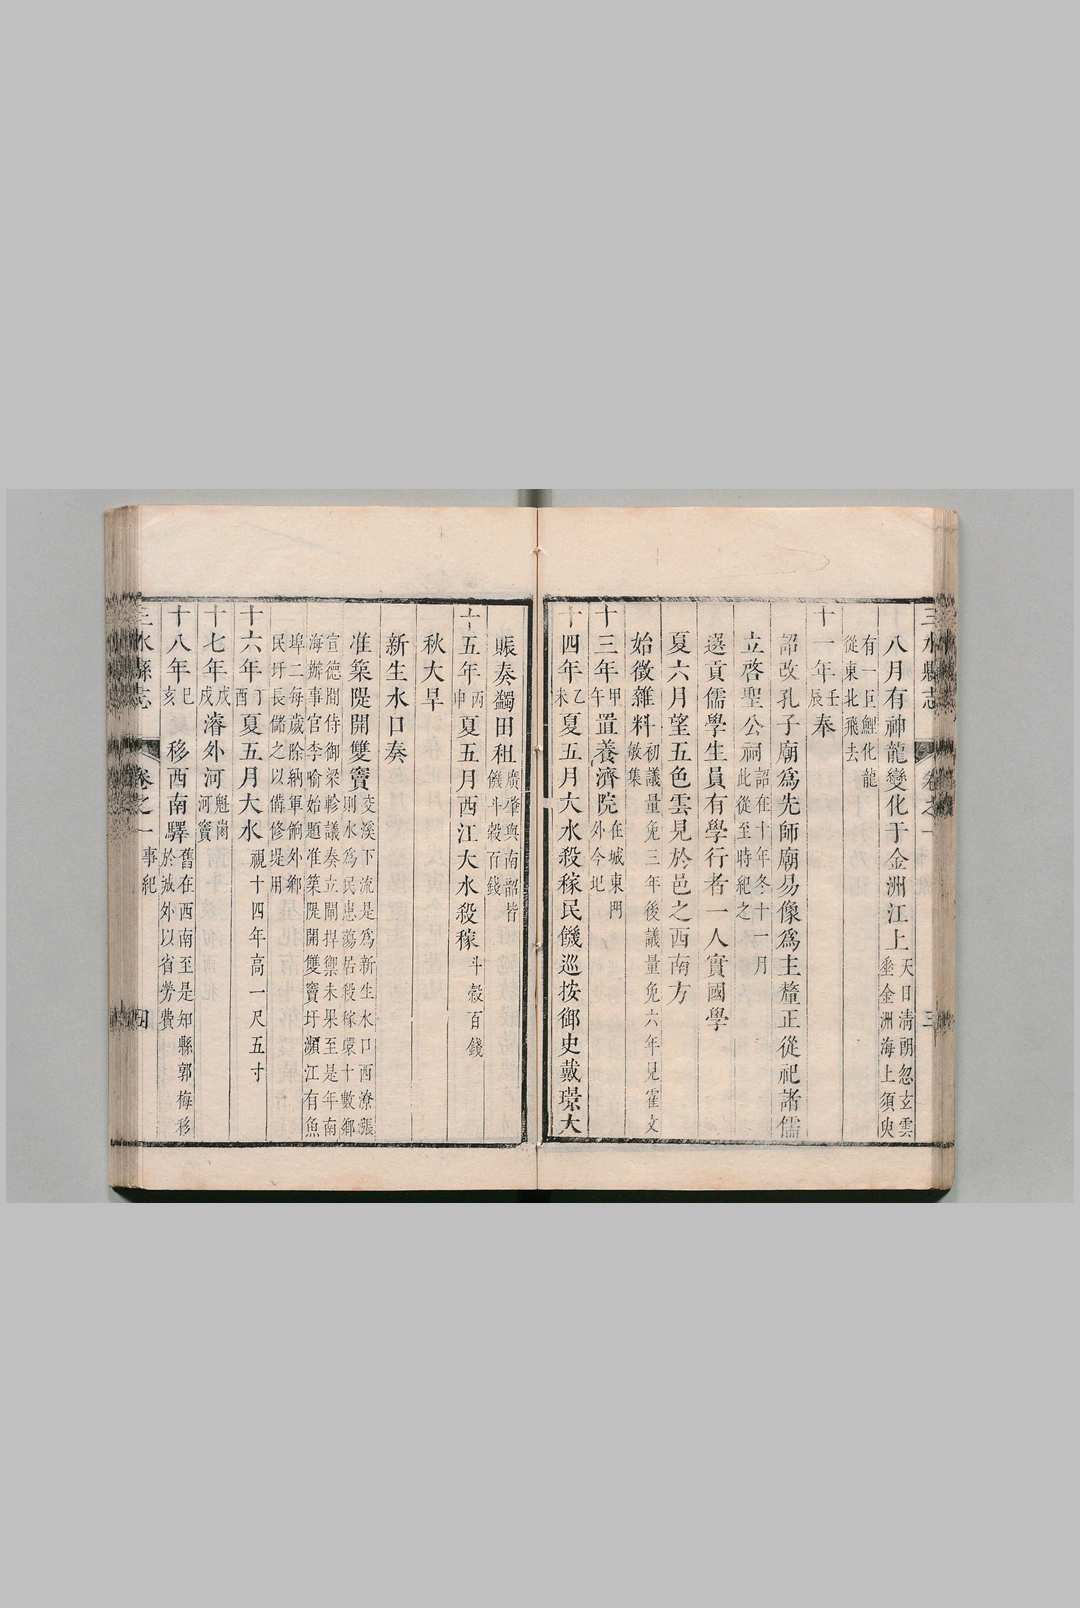 三水縣志 卷之一 三
八月有神龍變化于金洲江上天日清朗忽玄雲
垂金洲海上須臾
有一巨鯉化龍
從東北飛去
十一年壬辰奉
詔改孔子廟爲先師廟易像爲主釐正從祀諸儒
立啓聖公祠詔在十年冬十一月
此從至時紀之
選貢儒學生員有學行者一人實國學
夏六月望五色雲見於邑之西南方
始徵雜料初議量免三年後議量免六年見霍文
敏集
十三年甲午置養濟院在城東門
外今圮
十四年乙未夏五月大水殺稼民饑巡按御史戴璟大
賑奏蠲田租廣肇與南韶皆
饑斗穀百錢
十五年丙申夏五月西江大水殺稼斗穀百錢
秋大旱
新生水口奏
准築隄開雙竇交溪下流是爲新生水口西潦漲
則水爲民患蕩居殺稼環十數鄉
宣德間侍御梁軫議奏立閘捍禦未果至是年南
海辦事官李喻始題准築隄開雙竇圩瀕江有魚
埠二每歲除納軍餉外鄉
民圩長儲之以備修堤用
十六年丁酉夏五月大水視十四年高一尺五寸
十七年戊戌濬外河魁崗
河竇
十八年己亥移西南驛舊在西南至是知縣郭梅移
於城外以省勞費
三水縣志 卷之一 事紀 四